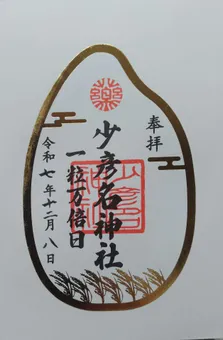 奉拝
薬
少彦名神社
一粒万倍日
令和七年十二月八日